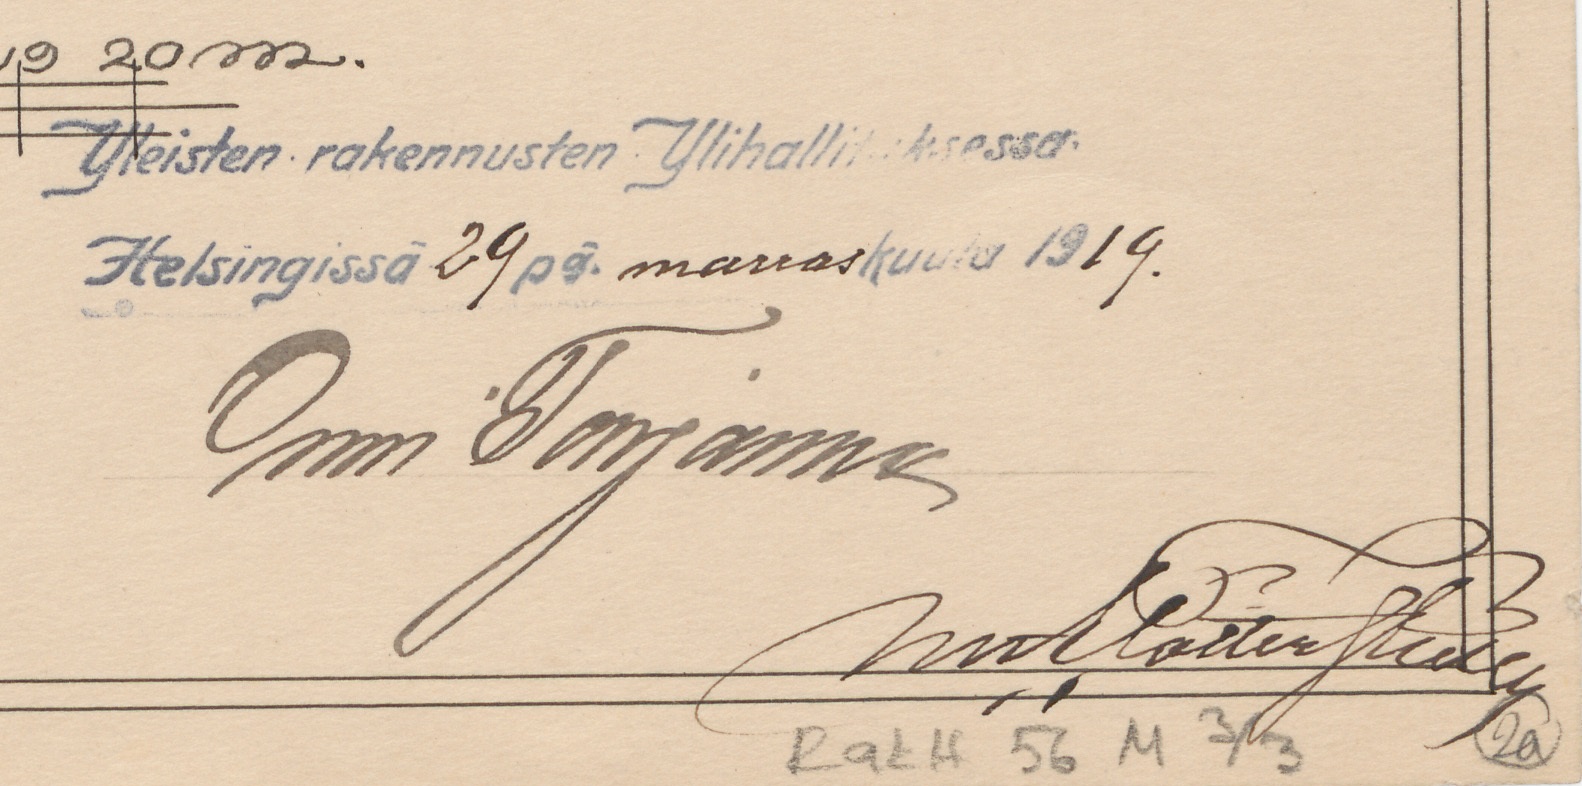 19 20 m.
Yleisten rakennusten Ylihallituksessa
Helsingissä 29 pä. marraskuuta 1919.
Onni Törjänne
RakH 56 M 3/3
2a